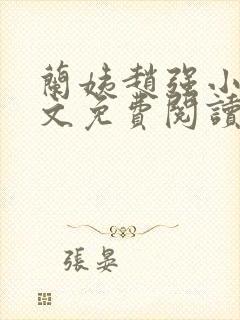 蘭姨趙强小
文免費閱讀
張晏